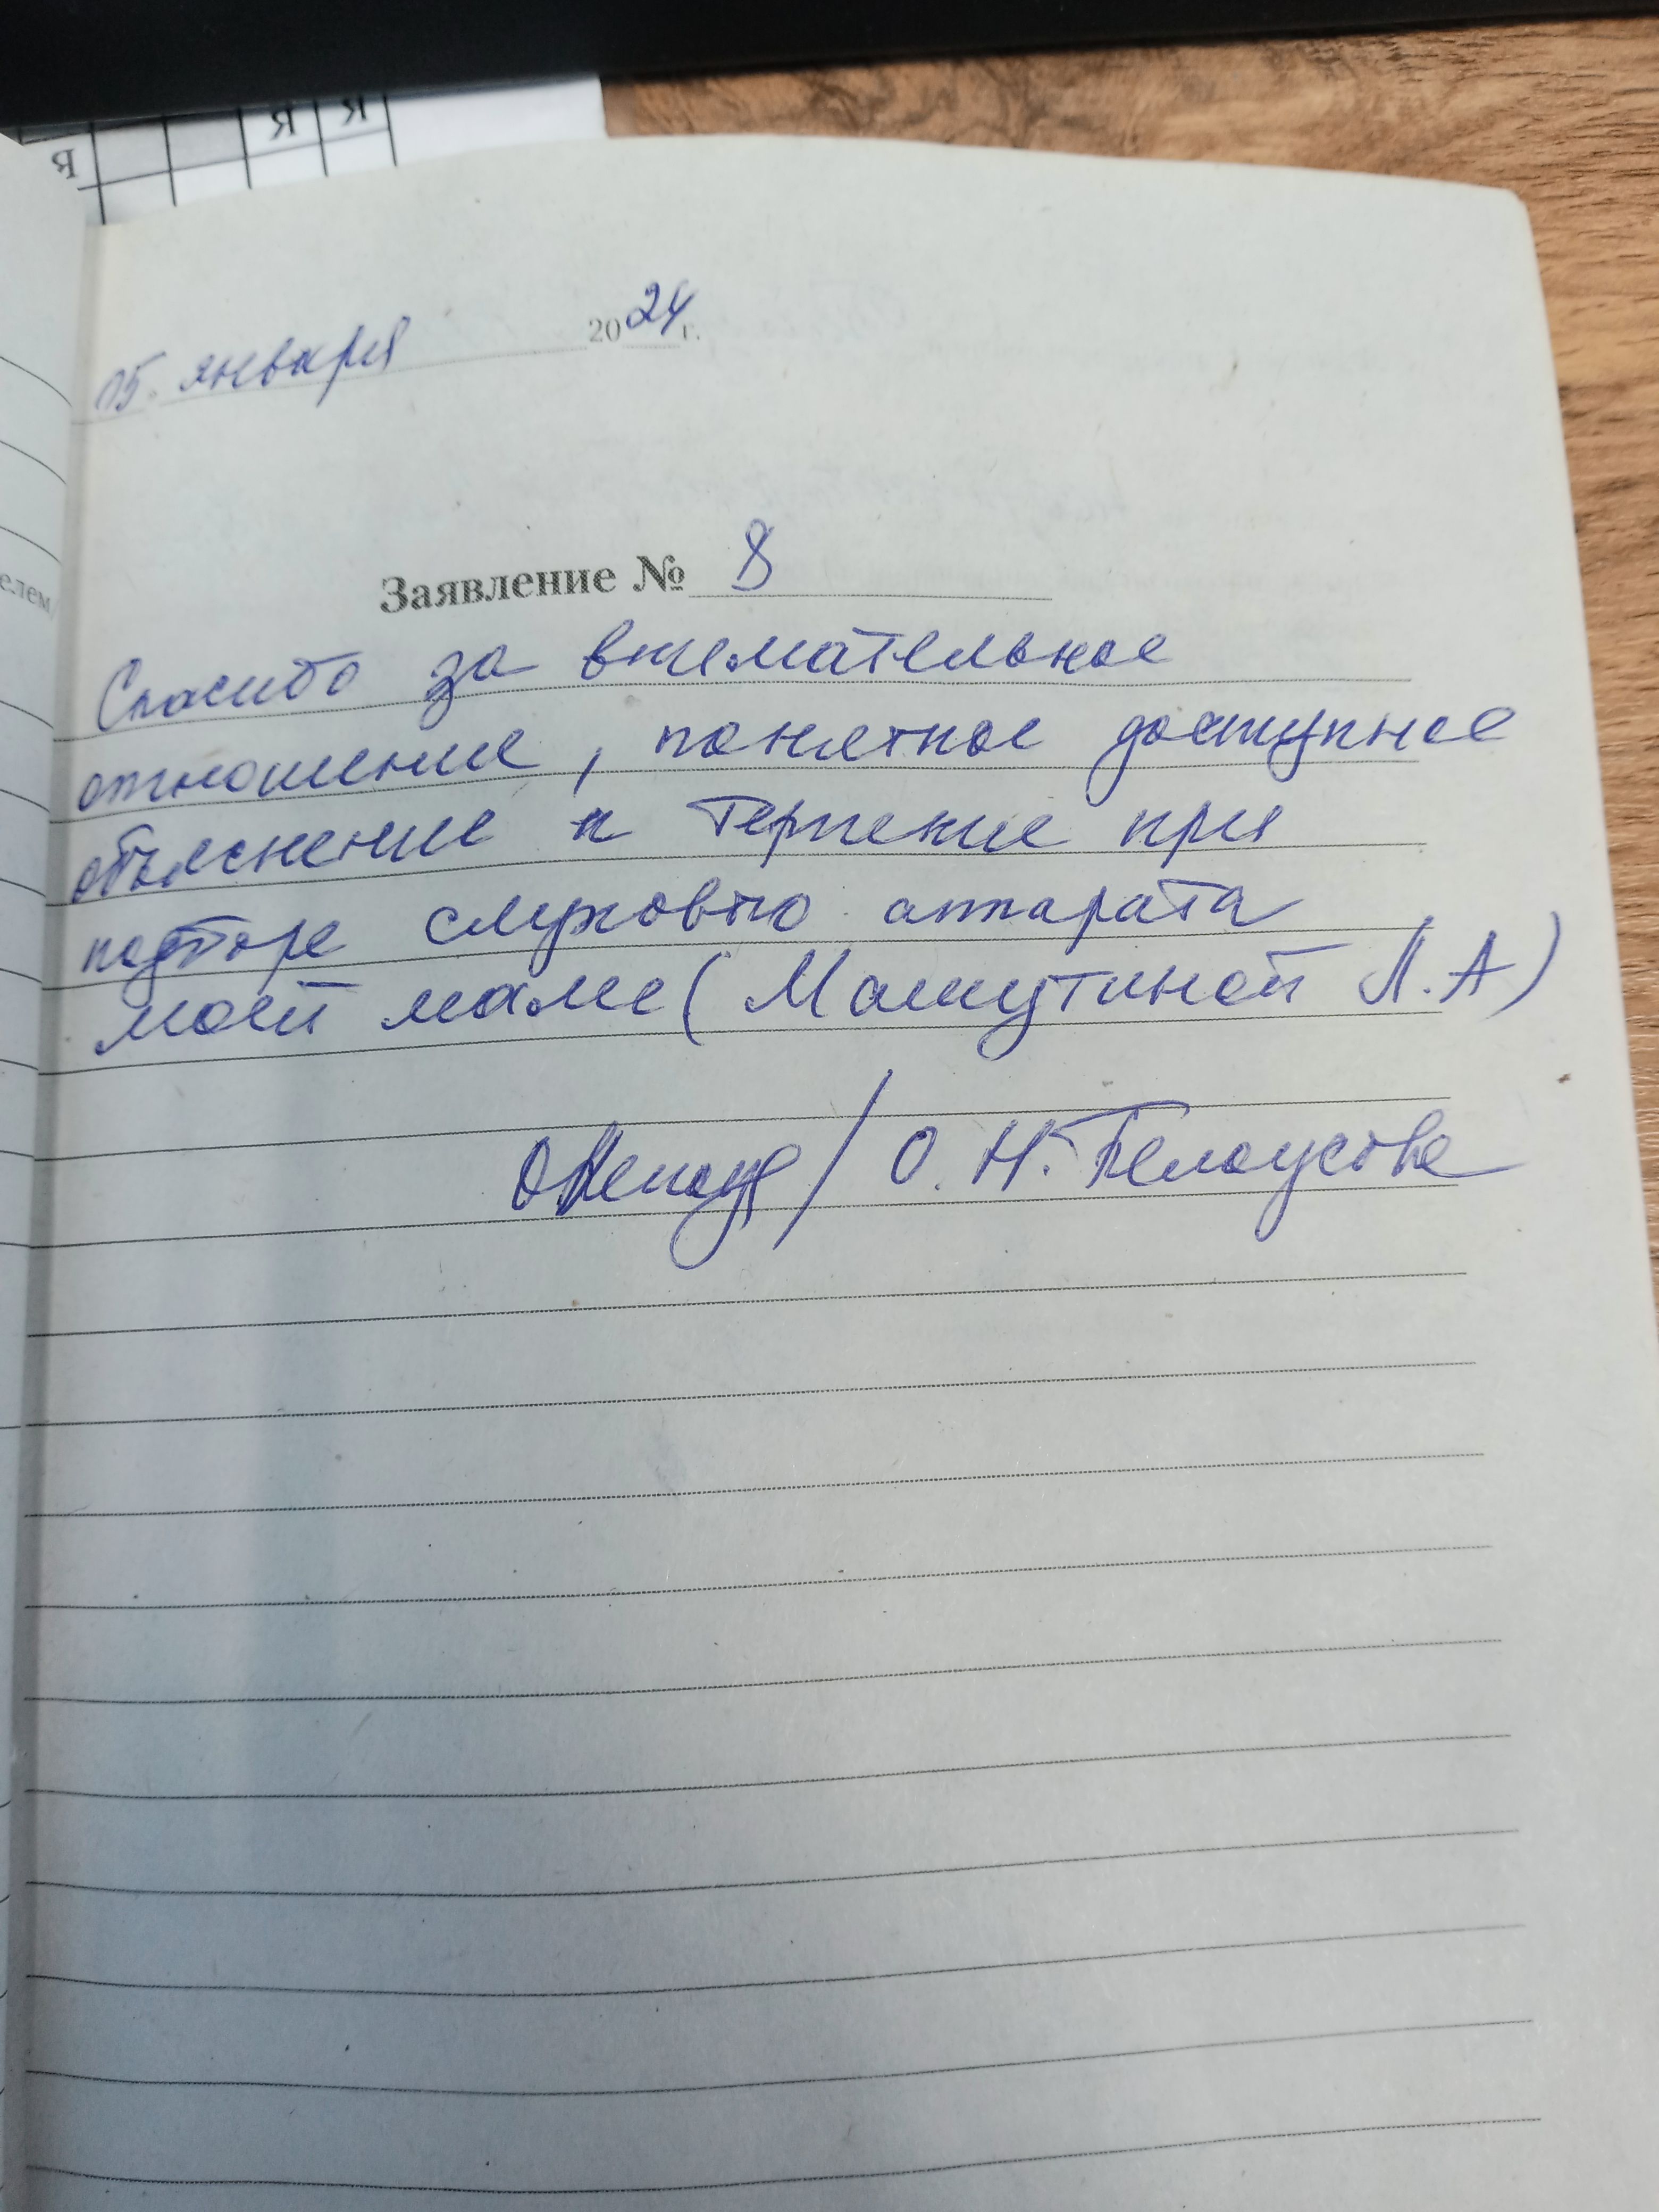 Я Я Я
05. января 2024 г.
елем/
Заявление № 8
Спасибо за внимательное
отношение, понятное доступное
объяснение и терпение при
подборе слухового аппарата
моей маме (Машутиной Л.А)
/ О.Н. Белоусова